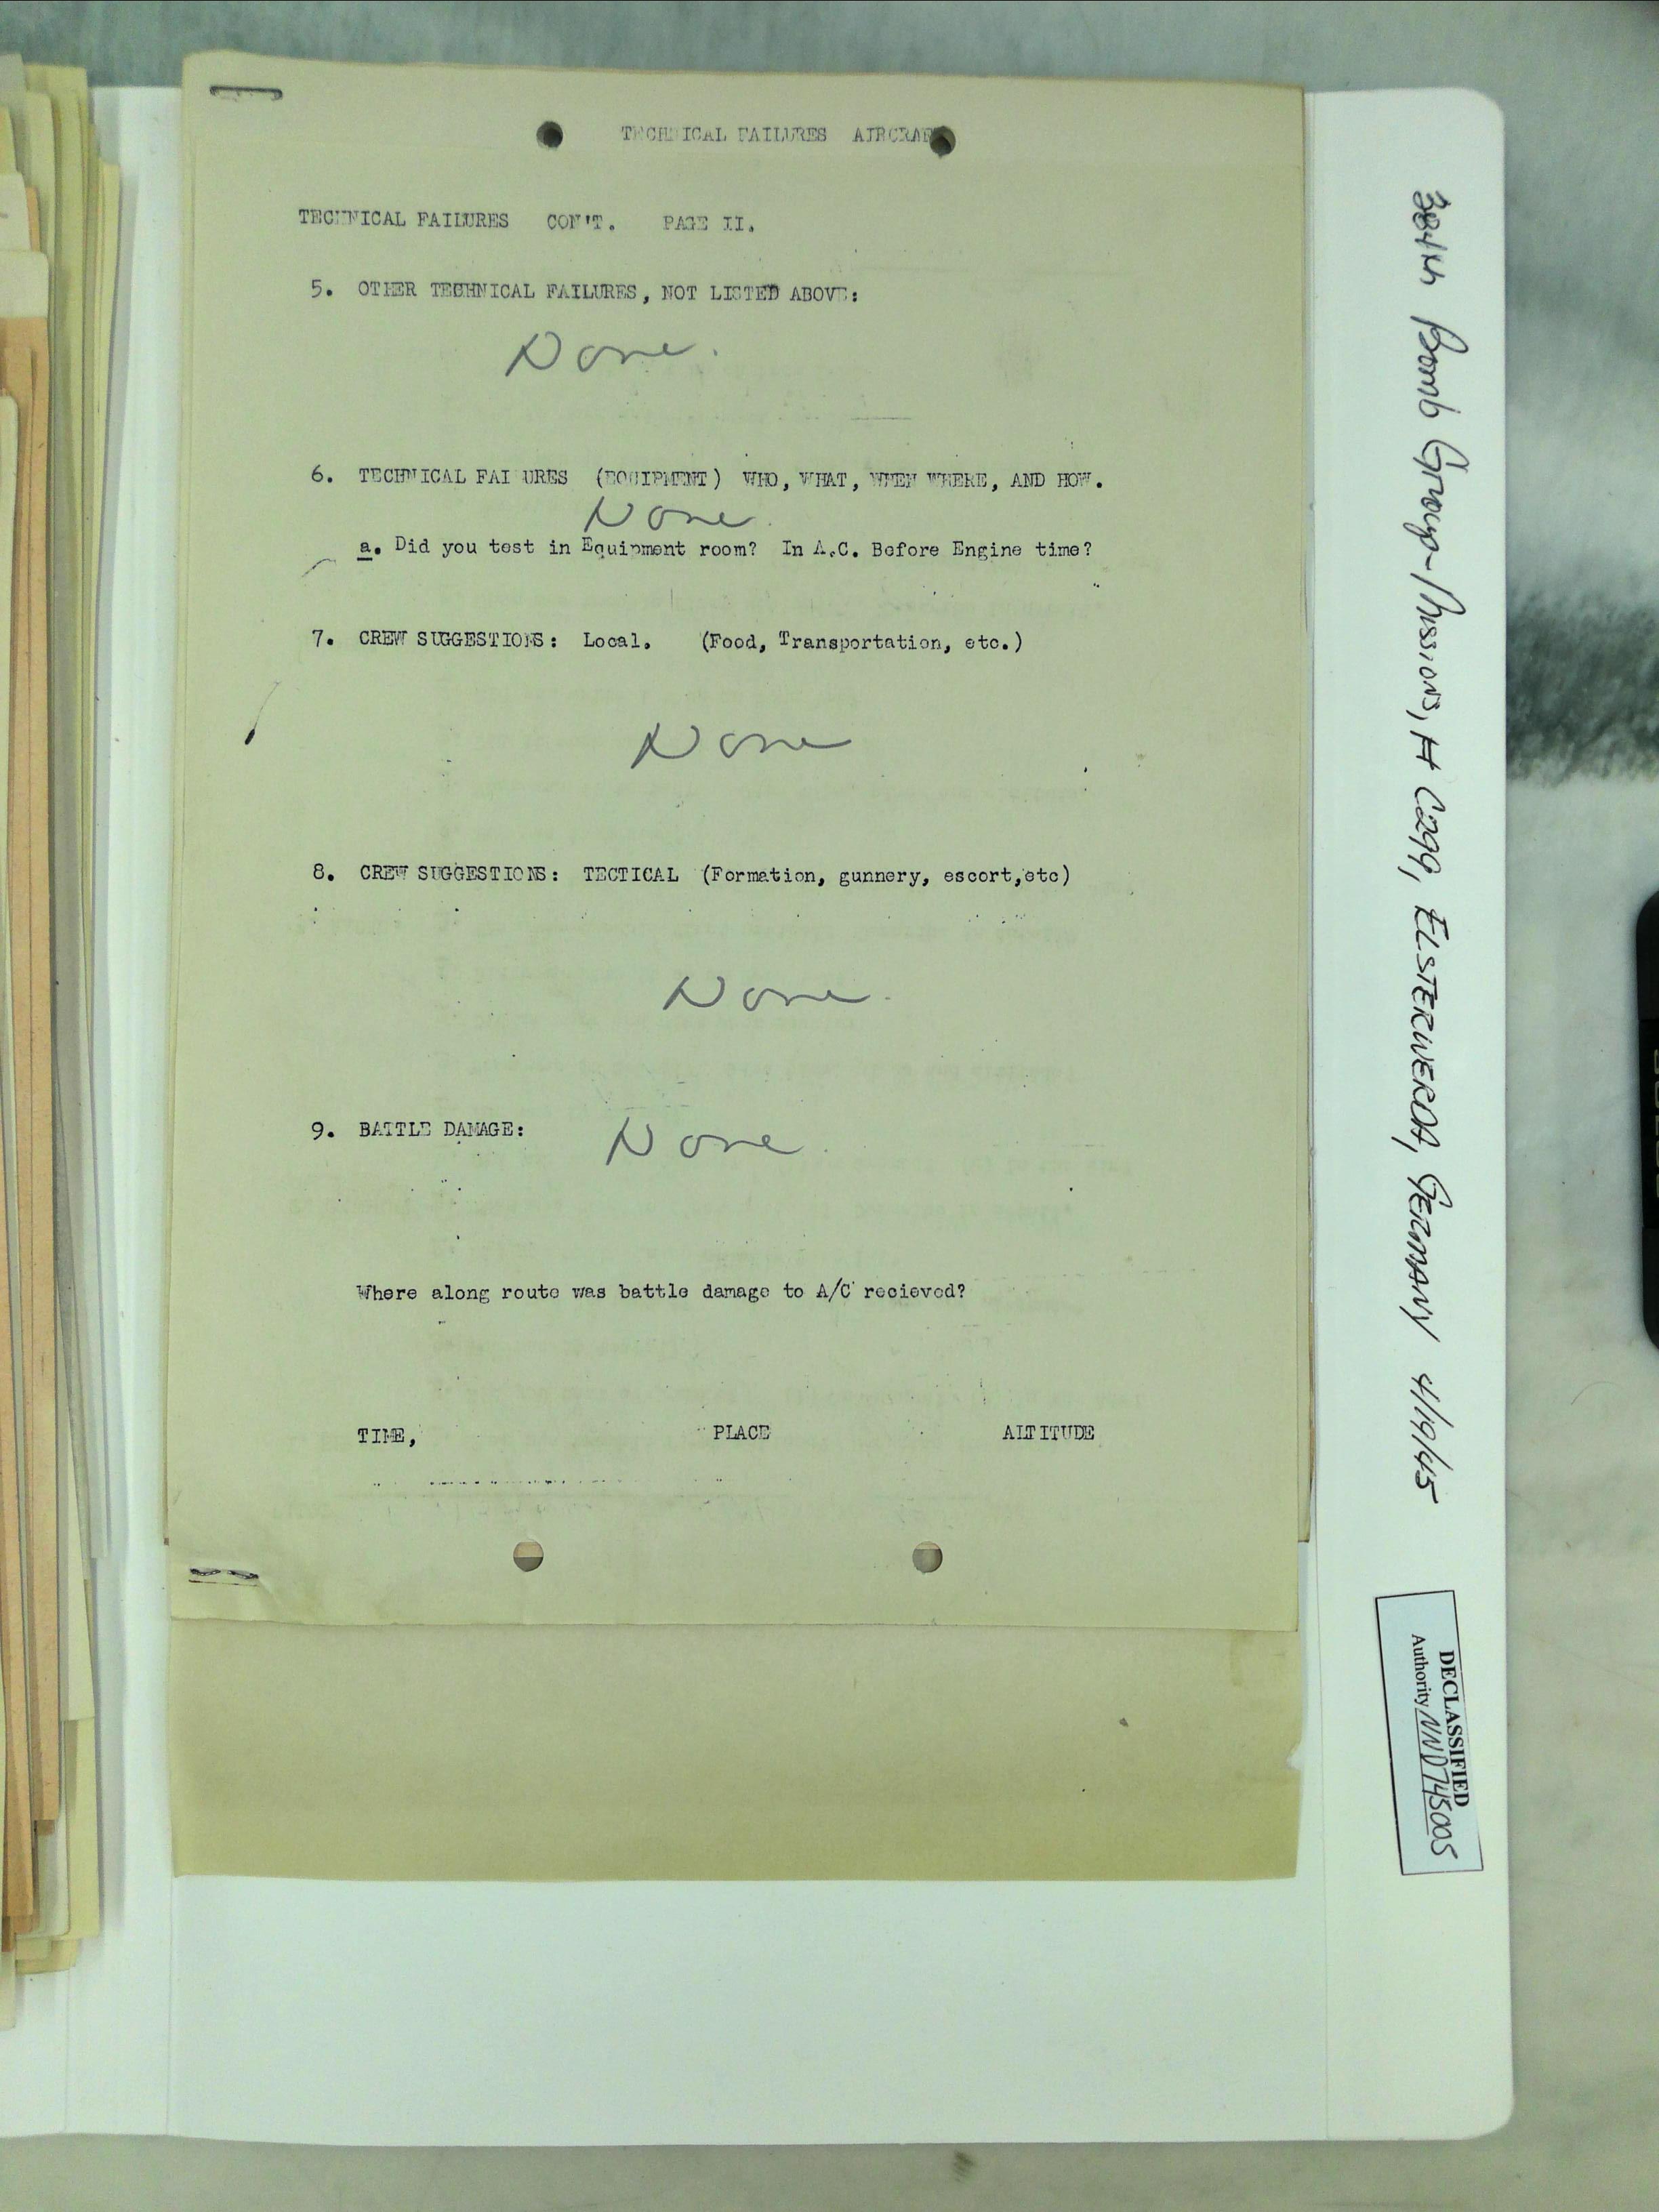 TECHNICAL FAILURES AIRCRAF
TECHNICAL FAILURES CON'T. PAGE II.
5. OTHER TECHNICAL FAILURES, NOT LISTED ABOVE:
None.
6. TECHNICAL FAI URES (EQUIPMENT) WHO, WHAT, WHEN WHERE, AND HOW.
None.
a. Did you test in Equipment room? In A.C. Before Engine time?
7. CREW SUGGESTIONS: Local. (Food, Transportation, etc.)
None
8. CREW SUGGESTIONS: TECTICAL (Formation, gunnery, escort,etc)
None.
9. BATTLE DAMAGE: None.
Where along route was battle damage to A/C recieved?
TIME, PLACE ALTITUDE
384th Bomb Group-Missions, # C299, ELSTERWERDA, GERMANY 4/19/45
DECLASSIFIED
Authority NND745005